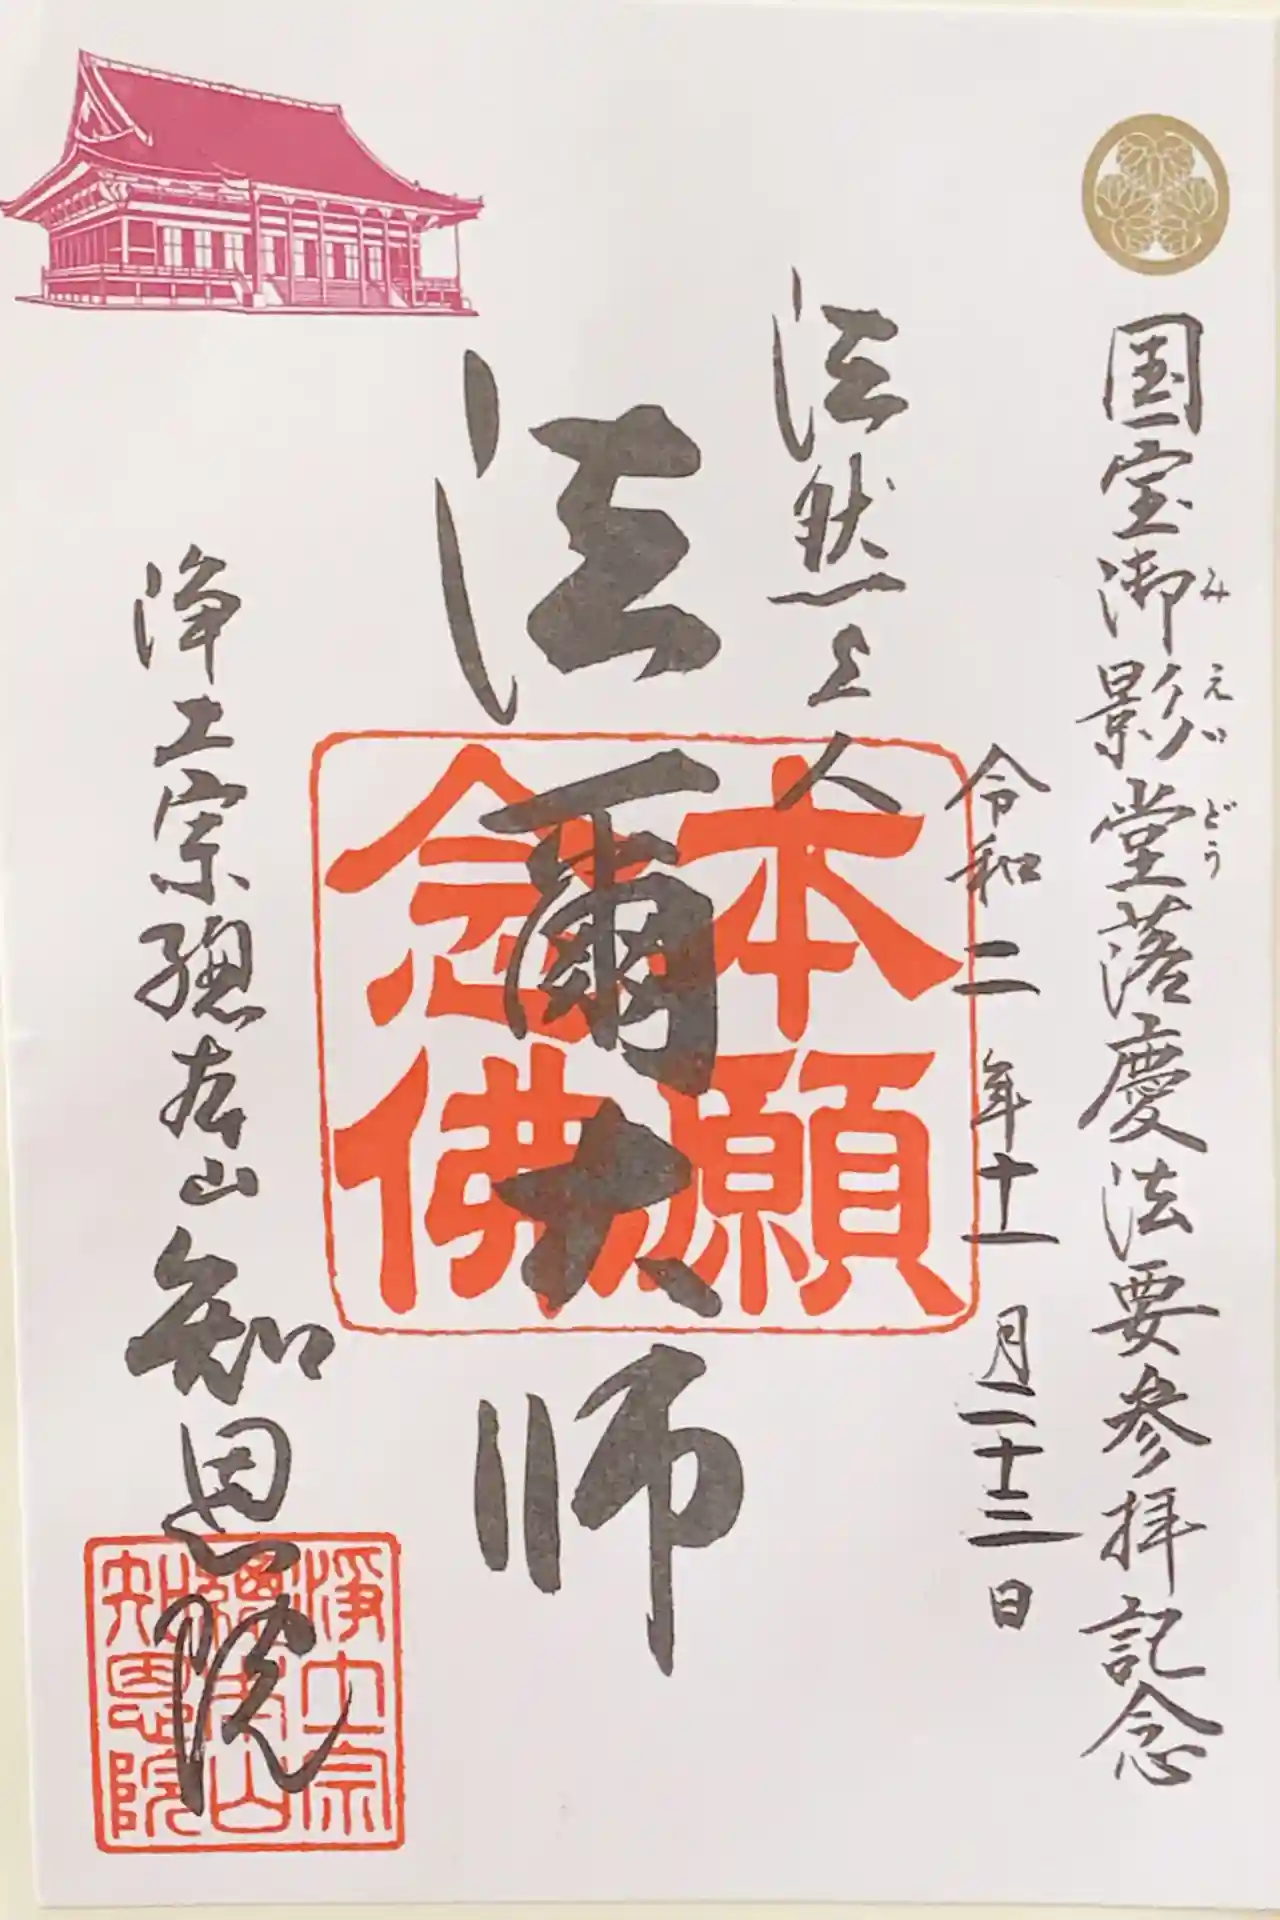 国宝御影堂落慶法要参拝記念
みえいどう
令和二年十一月二十三日
法然上人
法爾大師
本願
念佛
浄土宗總本山知恩院
浄土宗
總本山
知恩院